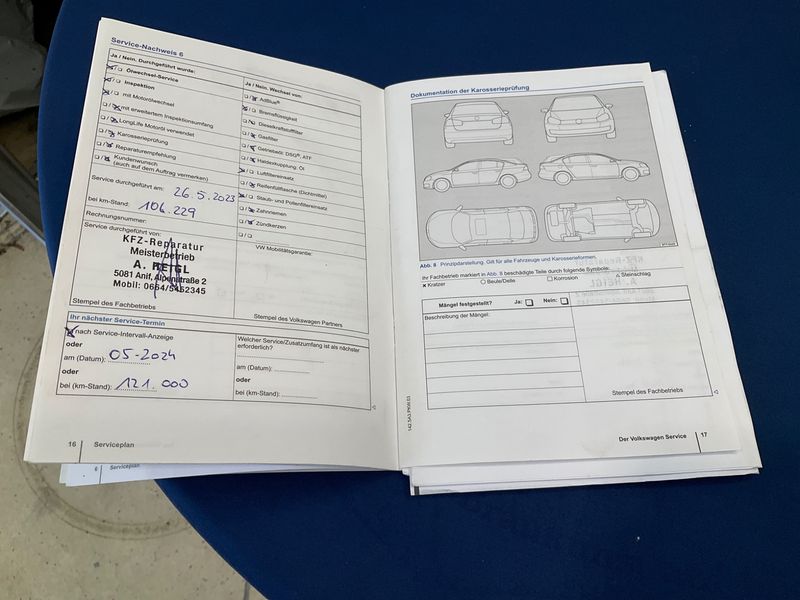 Service-Nachweis 6
Ja / Nein. Durchgeführt wurde:
Ölwechsel-Service
Inspektion
mit Motorölwechsel
mit erweitertem Inspektionsumfang
LongLife Motoröl verwendet
Karosserieprüfung
Reparaturempfehlung
Kundenwunsch
(auch auf dem Auftrag vermerken)
Service durchgeführt am: 26.5.2023
bei km-Stand: 106.229
Rechnungsnummer:
Service durchgeführt von:
KFZ-Reparatur
Meisterbetrieb
A. REIGL
5081 Anif, Alpenstraße 2
Mobil: 0664/5452345
Stempel des Fachbetriebs
Ja / Nein. Wechsel von:
AdBlue®
Bremsflüssigkeit
Dieselkraftstofffilter
Gasfilter
Getriebeöl: DSG®, ATF
Haldexkupplung: Öl
Luftfiltereinsatz
Reifenfüllflasche (Dichtmittel)
Staub- und Pollenfiltereinsatz
Zahnriemen
Zündkerzen
VW Mobilitätsgarantie:
Stempel des Volkswagen Partners
Ihr nächster Service-Termin
nach Service-Intervall-Anzeige
oder
am (Datum): 05-2024
oder
bei (km-Stand): 121.000
Welcher Service/Zusatzumfang ist als nächster
erforderlich?
am (Datum):
oder
bei (km-Stand):
16 Serviceplan
6 Serviceplan
Dokumentation der Karosserieprüfung
Abb. 8 Prinzipdarstellung. Gilt für alle Fahrzeuge und Karosserieformen.
Ihr Fachbetrieb markiert in Abb. 8 beschädigte Teile durch folgende Symbole:
× Kratzer ○ Beule/Delle □ Korrosion △ Steinschlag
Mängel festgestellt? Ja: Nein:
Beschreibung der Mängel:
Stempel des Fachbetriebs
142.5A3.PKW.03
Der Volkswagen Service 17